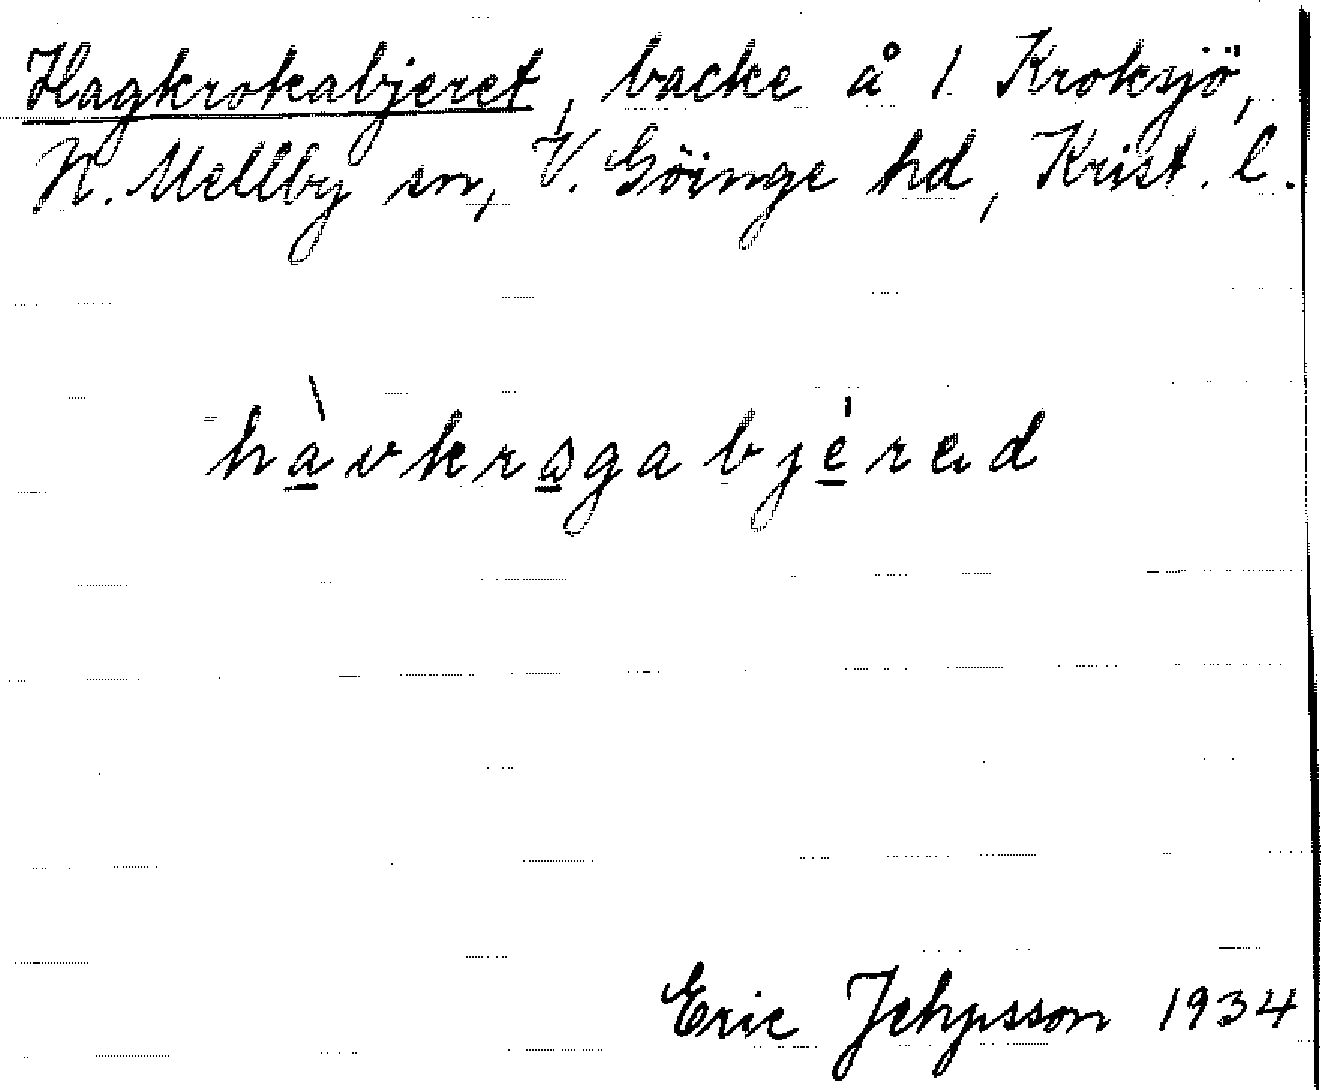 Hagkrokabjeret, backe å 1 Kroksjö,
N. Mellby sn, V. Göinge hd, Krist. l.
hàvkrɷgabjéred
Eric Jehpsson 1934